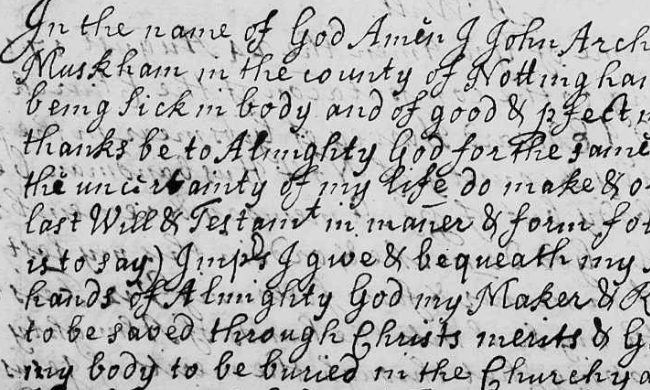 In the name of God Amen I John Arch
Muskham in the county of Nottingham
being sick in body and of good & pfect
thanks be to Almighty God for the same
the uncertainty of my life do make & o
last Will & Testamt in maner & form fol
is to say) Impds I give & bequeath my
hands of Almighty God my Maker & R
to be saved through Christs merits & G
my body to be buried in the Churchya